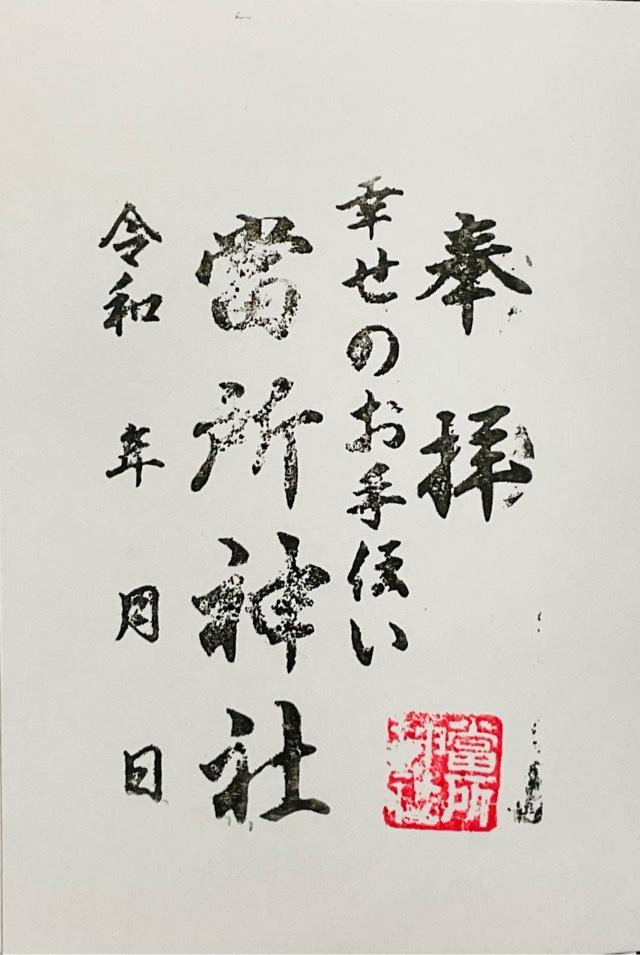 奉拝
幸せのお手伝い
當所神社
令和 年 月 日
當所
神社